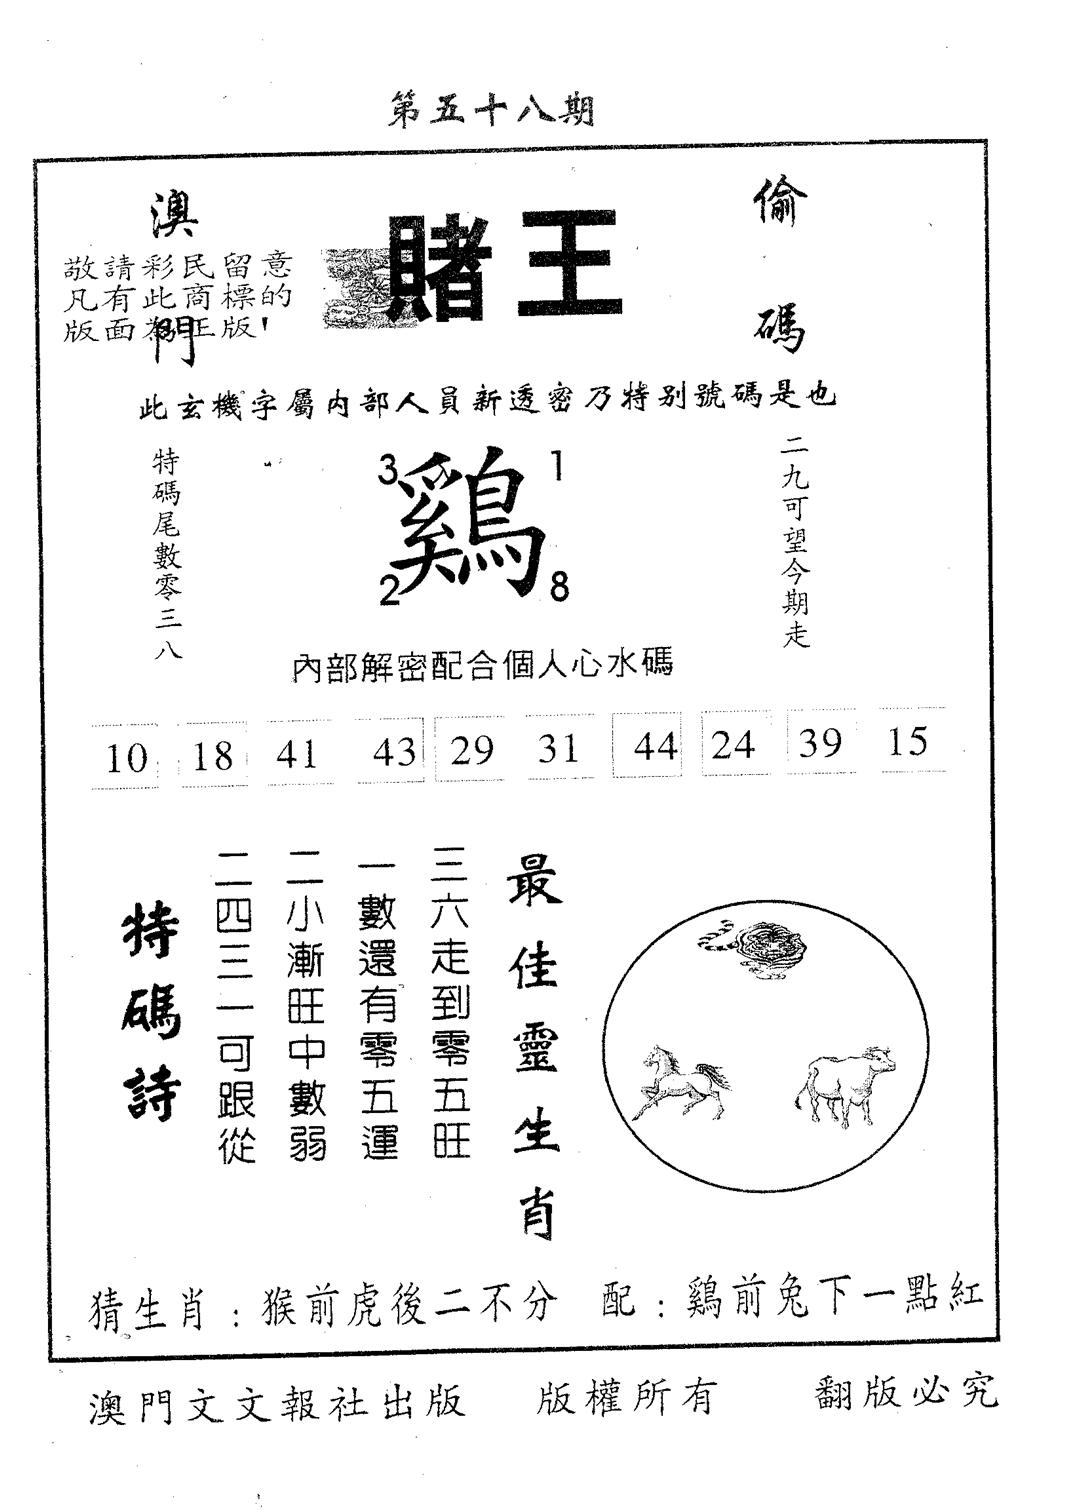 第五十八期
澳門
賭王
偷碼
敬請彩民留意
凡有此商標的
版面為正版!
此玄機字屬内部人員新透密乃特别號碼是也
特碼尾數零三八
3 1
鷄
2 8
二九可望今期走
內部解密配合個人心水碼
10 18 41 43 29 31 44 24 39 15
最佳靈生肖
三六走到零五旺
一數還有零五運
二小漸旺中數弱
二四三一可跟從
特碼詩
猜生肖:猴前虎後二不分 配:鷄前兔下一點紅
澳門文文報社出版 版權所有 翻版必究